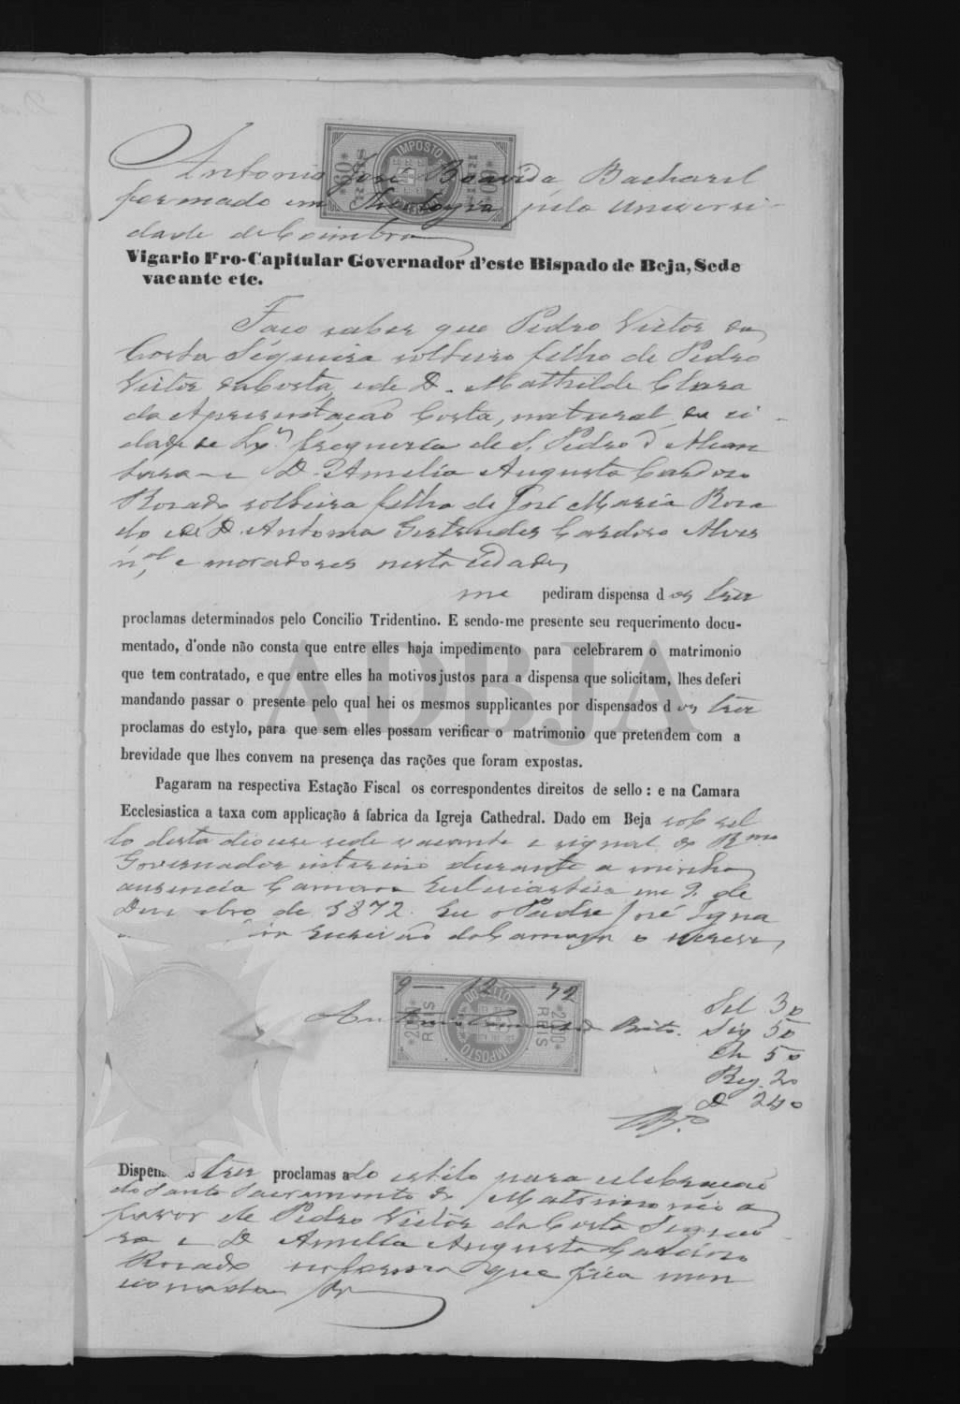 Antonio José Boavida Bacharel
formado em Theologia pela Universi-
dade de Coimbra
IMPOSTO
Vigario Pro-Capitular Governador d'este Bispado de Beja, Sede
vacante etc.
Faço saber que Pedro Victor da
Costa Sequeira solteiro filho de Pedro
Victor da Costa, e de D. Mathilde Clara
da Apresentação Costa, natural da ci-
dade de Lxª freguesia de S. Pedro d'Alcan
tara e D. Amelia Augusta Cardoso
Rosado solteira filha de José Maria Rosa
do e de D. Antonia Gertrudes Cardoso Alves
n.ᵃˡ e moradores nesta cidade,
me pediram dispensa dos tres
proclamas determinados pelo Concilio Tridentino. E sendo-me presente seu requerimento docu-
mentado, d'onde não consta que entre elles haja impedimento para celebrarem o matrimonio
que tem contratado, e que entre elles ha motivos justos para a dispensa que solicitam, lhes deferi
mandando passar o presente pelo qual hei os mesmos supplicantes por dispensados dos tres
proclamas do estylo, para que sem elles possam verificar o matrimonio que pretendem com a
brevidade que lhes convem na presença das rações que foram expostas.
Pagaram na respectiva Estação Fiscal os correspondentes direitos de sello: e na Camara
Ecclesiastica a taxa com applicação á fabrica da Igreja Cathedral. Dado em Beja sob sel
lo desta diocese sede vacante e signal do Rmo
Governador interino durante a minha
ausencia Camara Ecclesiastica em 9 de
Dezembro de 1872. Eu o Padre José Igna
Escrivão da Camara o escrevi,
9 — 12 — 72
200 REIS IMPOSTO DO SELLO 200 REIS
Antonio Brito.
Sel 30
Sig 50
Ch 50
Reg. 20
D 240
ADBJA
Dispen os tres proclamas do estilo para celebração
do Santo Sacramento do Matrimonio a
favor de Pedro Victor da Costa Sequei
ra e D. Amelia Augusta Cardoso
Rosado na forma que fica men
cionada